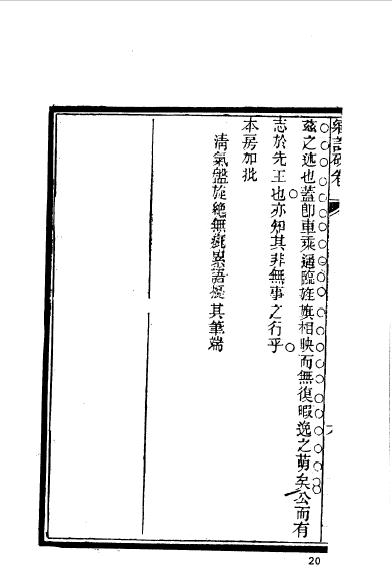 茲之述也蓋即車乘遙臨旌旗相映而無復暇逸之萌矣公而有
志於先王也亦知其非無事之行乎
本房加批
清氣盤旋絶無疵累語凝其筆端
20